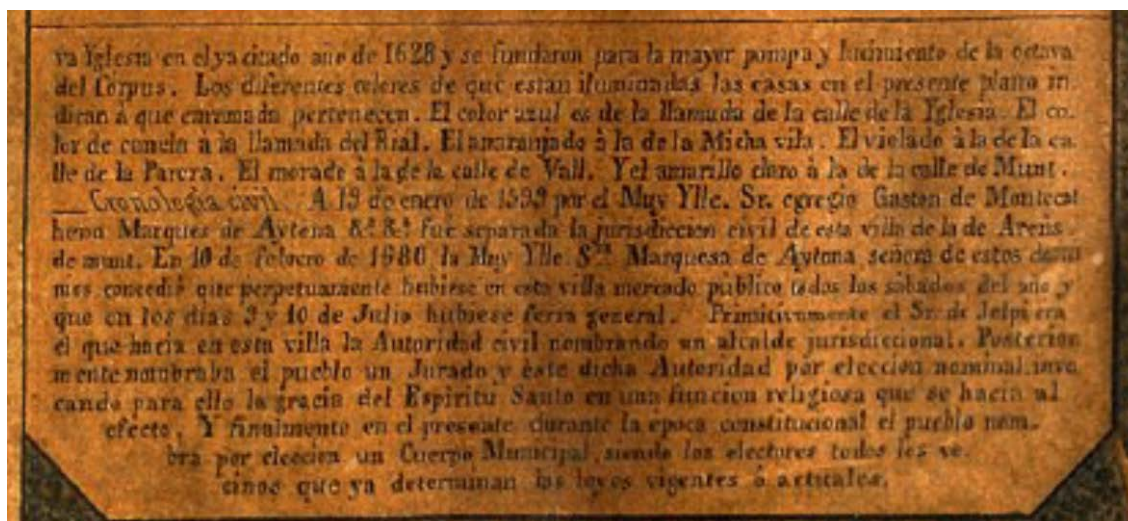 va Yglesia en el ya citado año de 1628 y se fundaron para la mayor pompa y lucimiento de la octava
del Corpus. Los diferentes colores de que estan iluminadas las casas en el presente plano in
dican á que caramada pertenecen. El color azul es de la llamada de la calle de la Yglesia. El co.
lor de canela á la llamada del Rial. El anaranjado á la de la Micha vila. El violado á la de la ca
lle de la Parera. El morado á la de la calle de Vall. Y el amarillo claro á la de la calle de Munt.
— Cronologia civil. A 13 de enero de 1599 por el Muy Ylle. Sr. egregio Gaston de Montecat
heno Marques de Aytona &ª &ª fué separada la jurisdiccion civil de esta villa de la de Arens
de munt. En 10 de febrero de 1680 la Muy Ylle Sra. Marquesa de Aytona señora de estos domi
nios concedió que perpetuamente hubiese en esta villa mercado público todos los sabados del año y
que en los dias 9 y 10 de Julio hubiese feria general. Primitivamente el Sr. de Jalpi era
el que hacia en esta villa la Autoridad civil nombrando un alcalde jurisdiccional. Posterior
mente nombraba el pueblo un Jurado y éste dicha Autoridad por eleccion nominal invo
cando para ello la gracia del Espiritu Santo en una funcion religiosa que se hacia al
efecto. Y finalmente en el presente durante la epoca constitucional el pueblo nom.
bra por eleccion un Cuerpo Municipal, siendo los electores todos los ve.
cinos que ya determinan las leyes vigentes ó actuales.